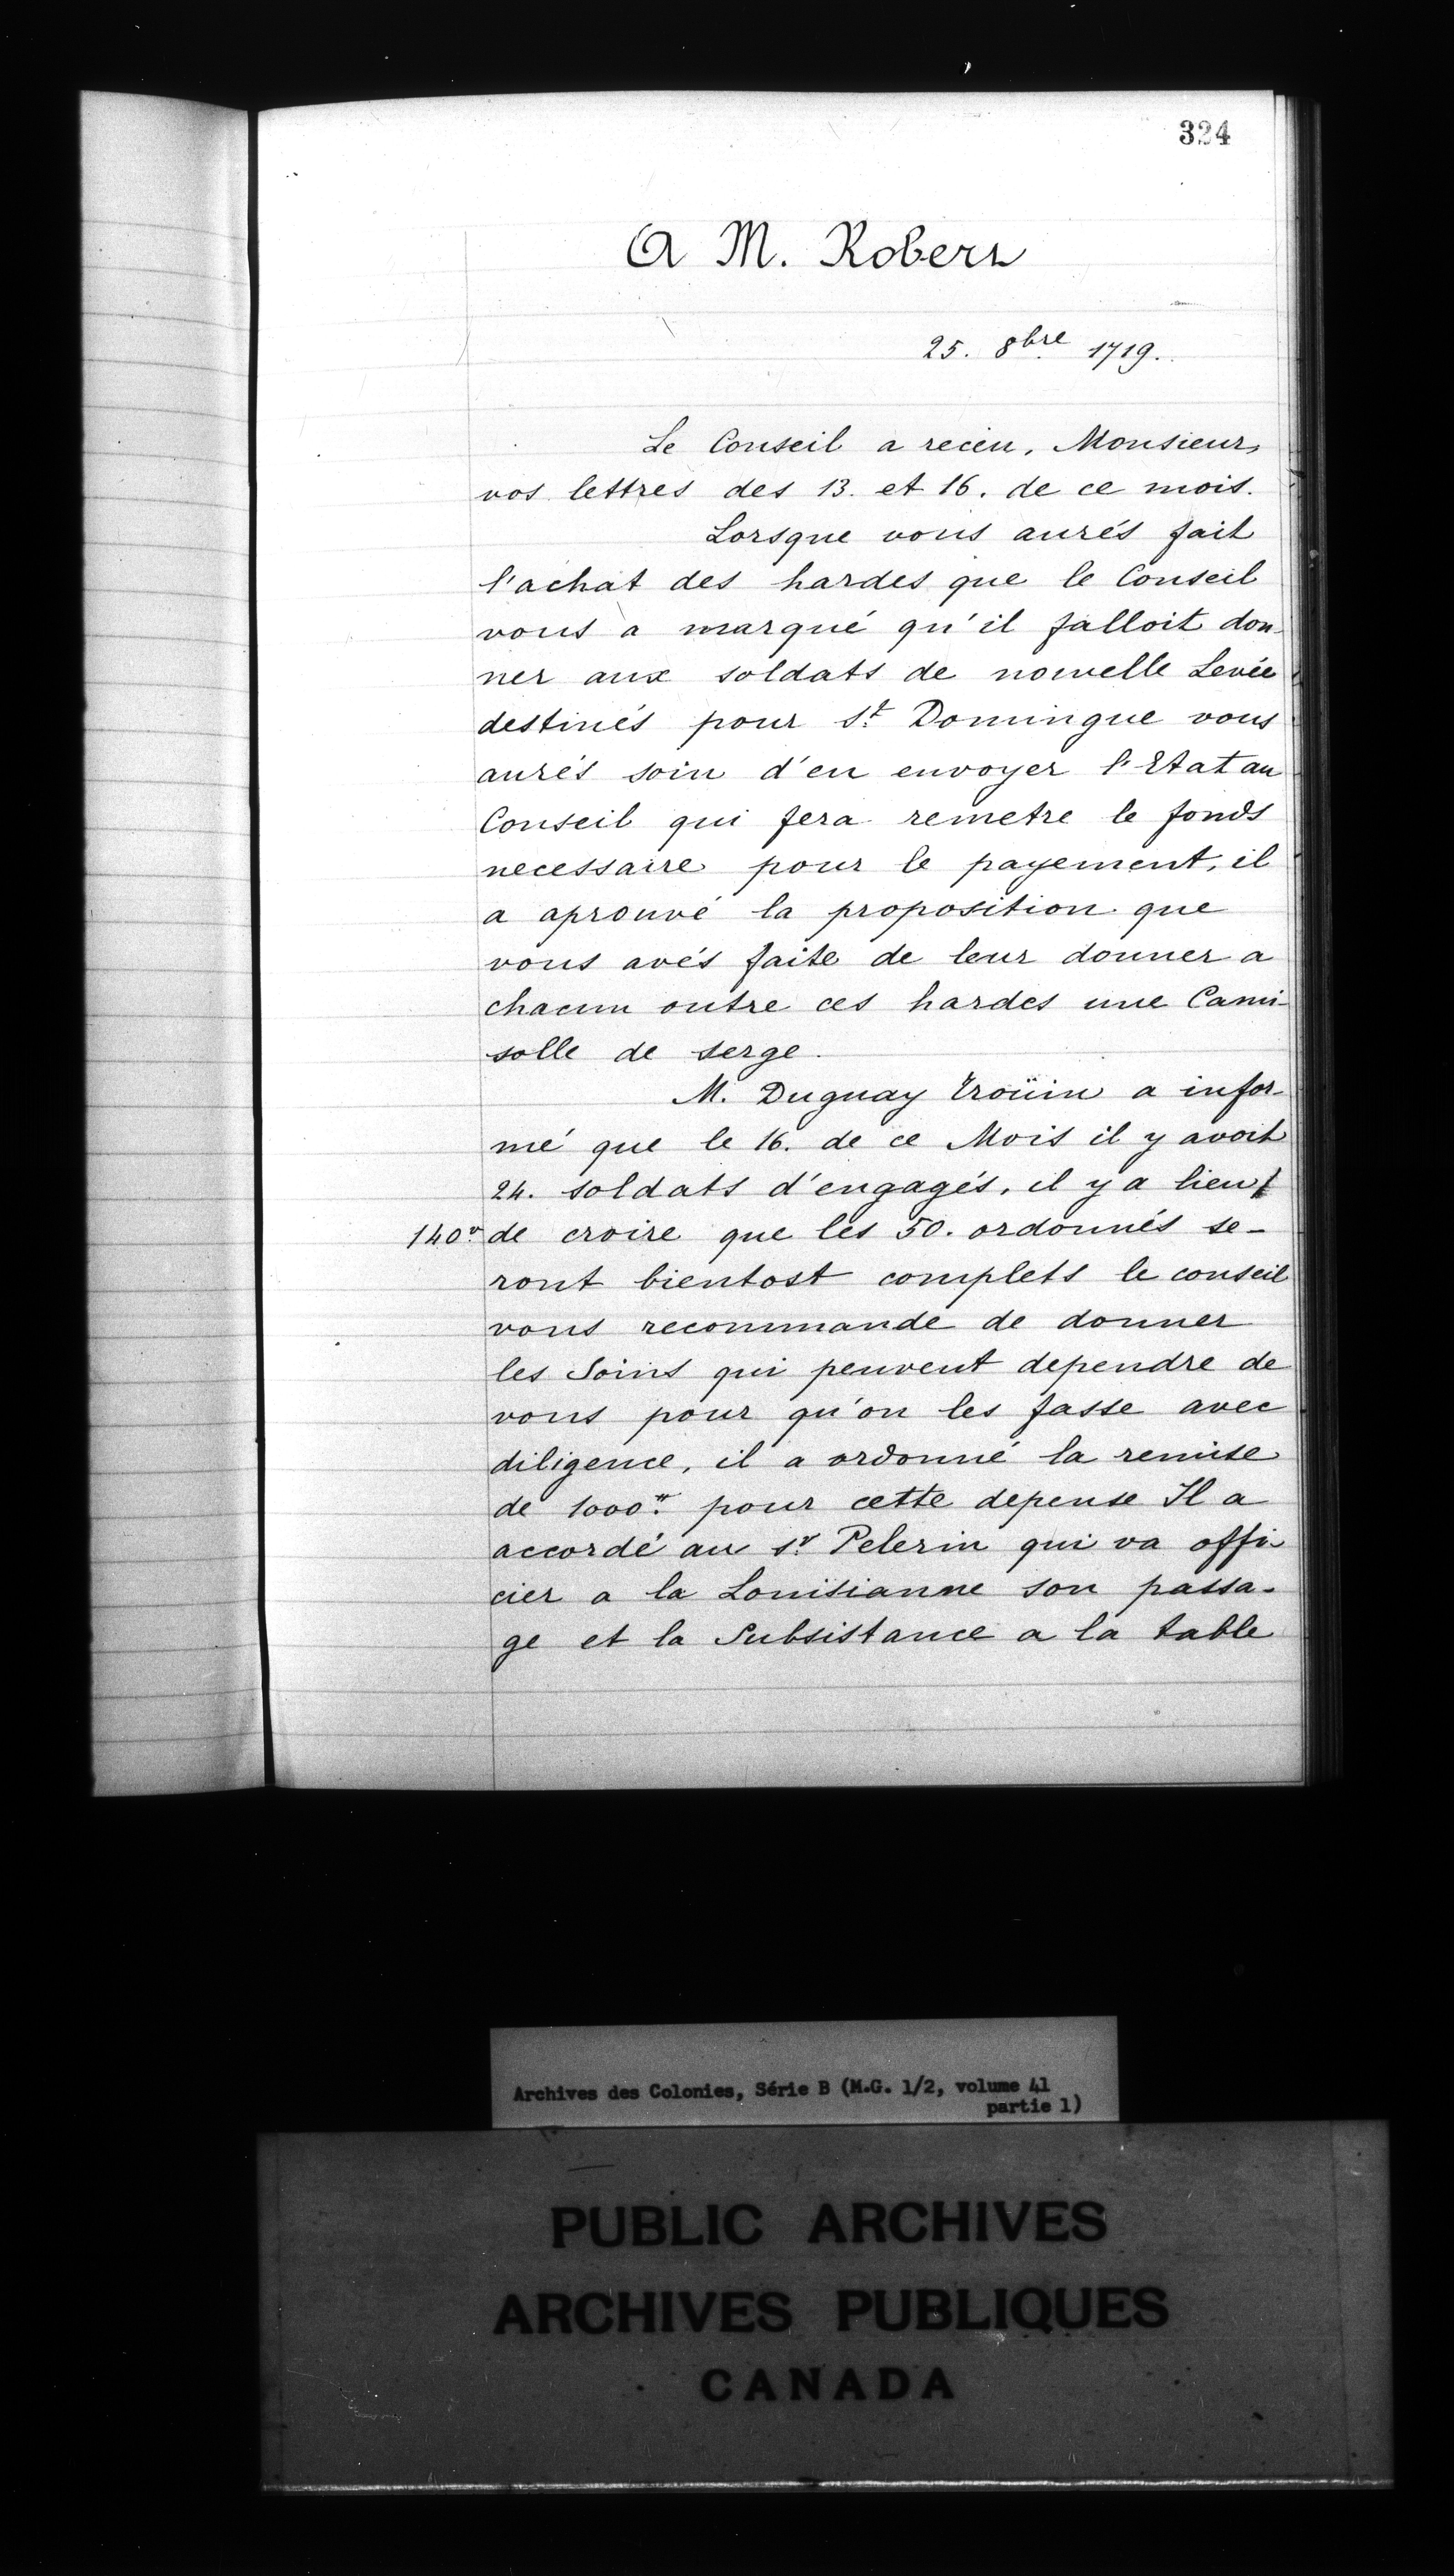 324
A M. Robert
25. 8bre 1719.
Le Conseil a receu, Monsieur,
vos lettres des 13. et 16. de ce mois.
Lorsque vous aurés fait
l'achat des hardes que le Conseil
vous a marqué qu'il falloit don-
ner aux soldats de nouvelle Levée
destinés pour St. Domingue vous
aurés soin d'en envoyer l'Etat au
Conseil qui fera remetre le fonds
necessaire pour le payement, il
a aprouvé la proposition que
vous avés faite de leur donner a
chacun outre ces hardes une Cami-
solle de serge.
M. Duguay Troüin a infor-
mé que le 16. de ce Mois il y avoit
24. soldats d'engagés, il y a lieu /
140v. de croire que les 50. ordonnés se-
ront bientost complets le conseil
vous recommande de donner
les Soins qui peuvent dependre de
vous pour qu'on les fasse avec
diligence, il a ordonné la remise
de 1000.tt pour cette depense Il a
accordé au sr. Pelerin qui va offi-
cier a la Louisianne son passa-
ge et la Subsistance a la table
Archives des Colonies, Série B (M.G. 1/2, volume 41
partie 1)
PUBLIC ARCHIVES
ARCHIVES PUBLIQUES
CANADA